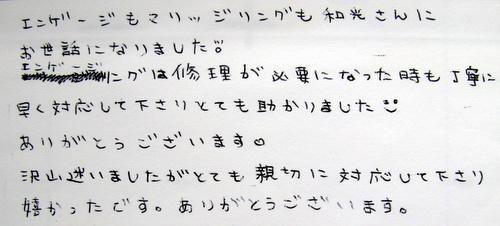 エンゲージもマリッジリングも和光さんに
お世話になりました。
エンゲージ
ングは修理が必要になった時も丁寧に
早く対応して下さりとても助かりました
ありがとうございます♡
沢山迷いましたがとても親切に対応して下さり
嬉かったです。ありがとうございます。